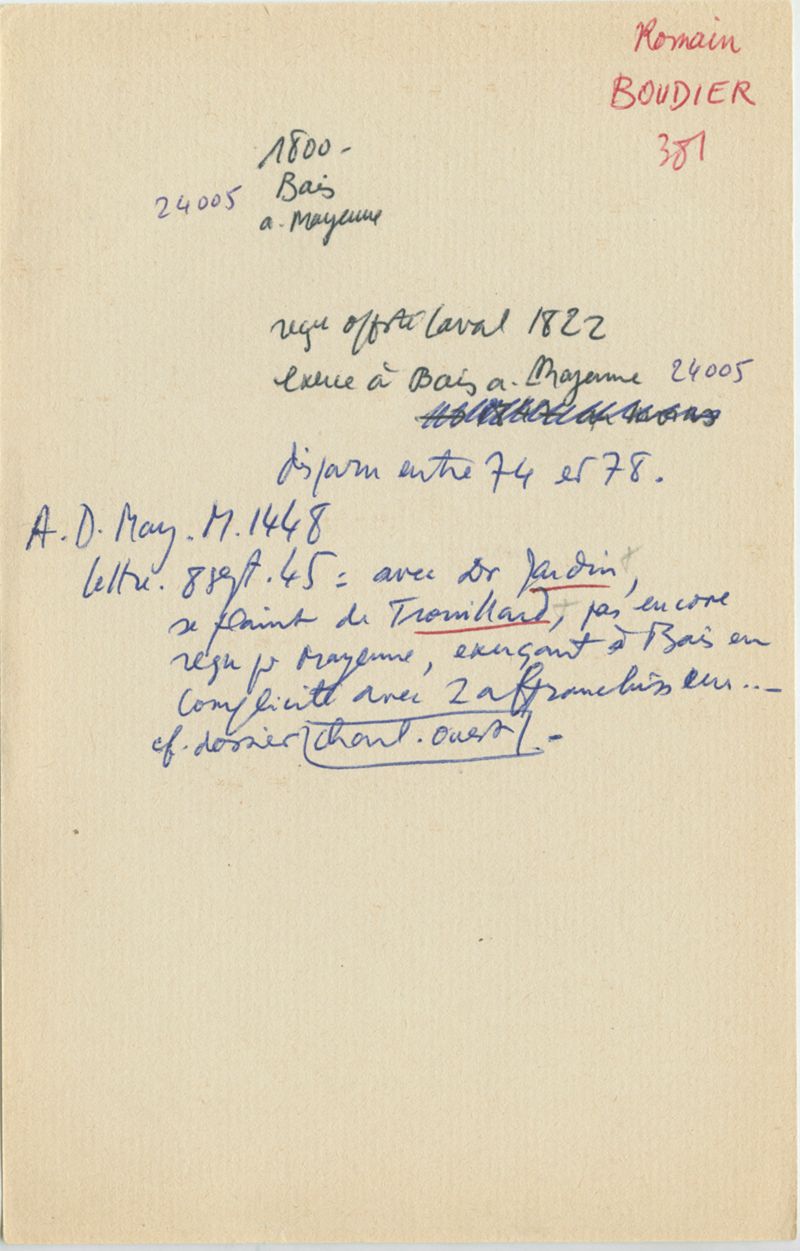 Romain
BOUDIER
381
1800 -
Bais
24005
a. Mayenne
reçu offsté Laval 1822
exerce à Bais a. Mayenne 24005
disparu entre 74 et 78.
A. D. May. M. 1448
lettre. 8 sept. 45 = avec Dr Jardin,
se plaint de Trouillard, pas encore
reçu pr Mayenne, exerçant à Bais en
complicité avec 2 affranchisseurs...
cf. dossier charl. ouest. -